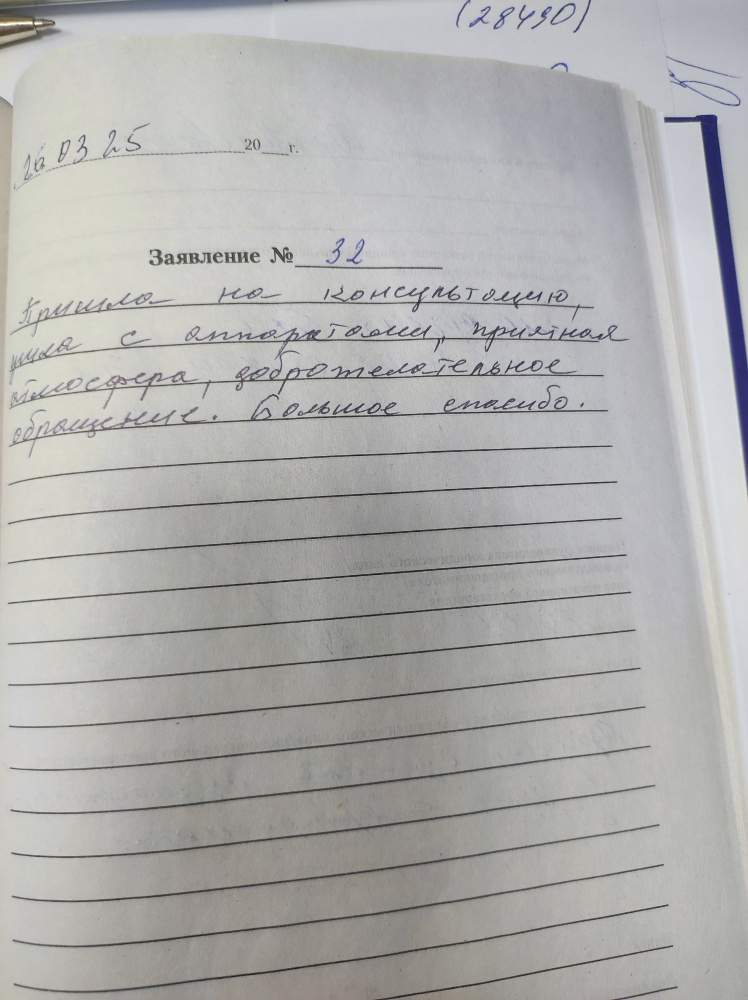 (28490)
26 03 25 20 г.
Заявление № 32
Пришла на консультацию,
ушла с аппаратами, приятная
атмосфера, доброжелательное
обращение. Большое спасибо.